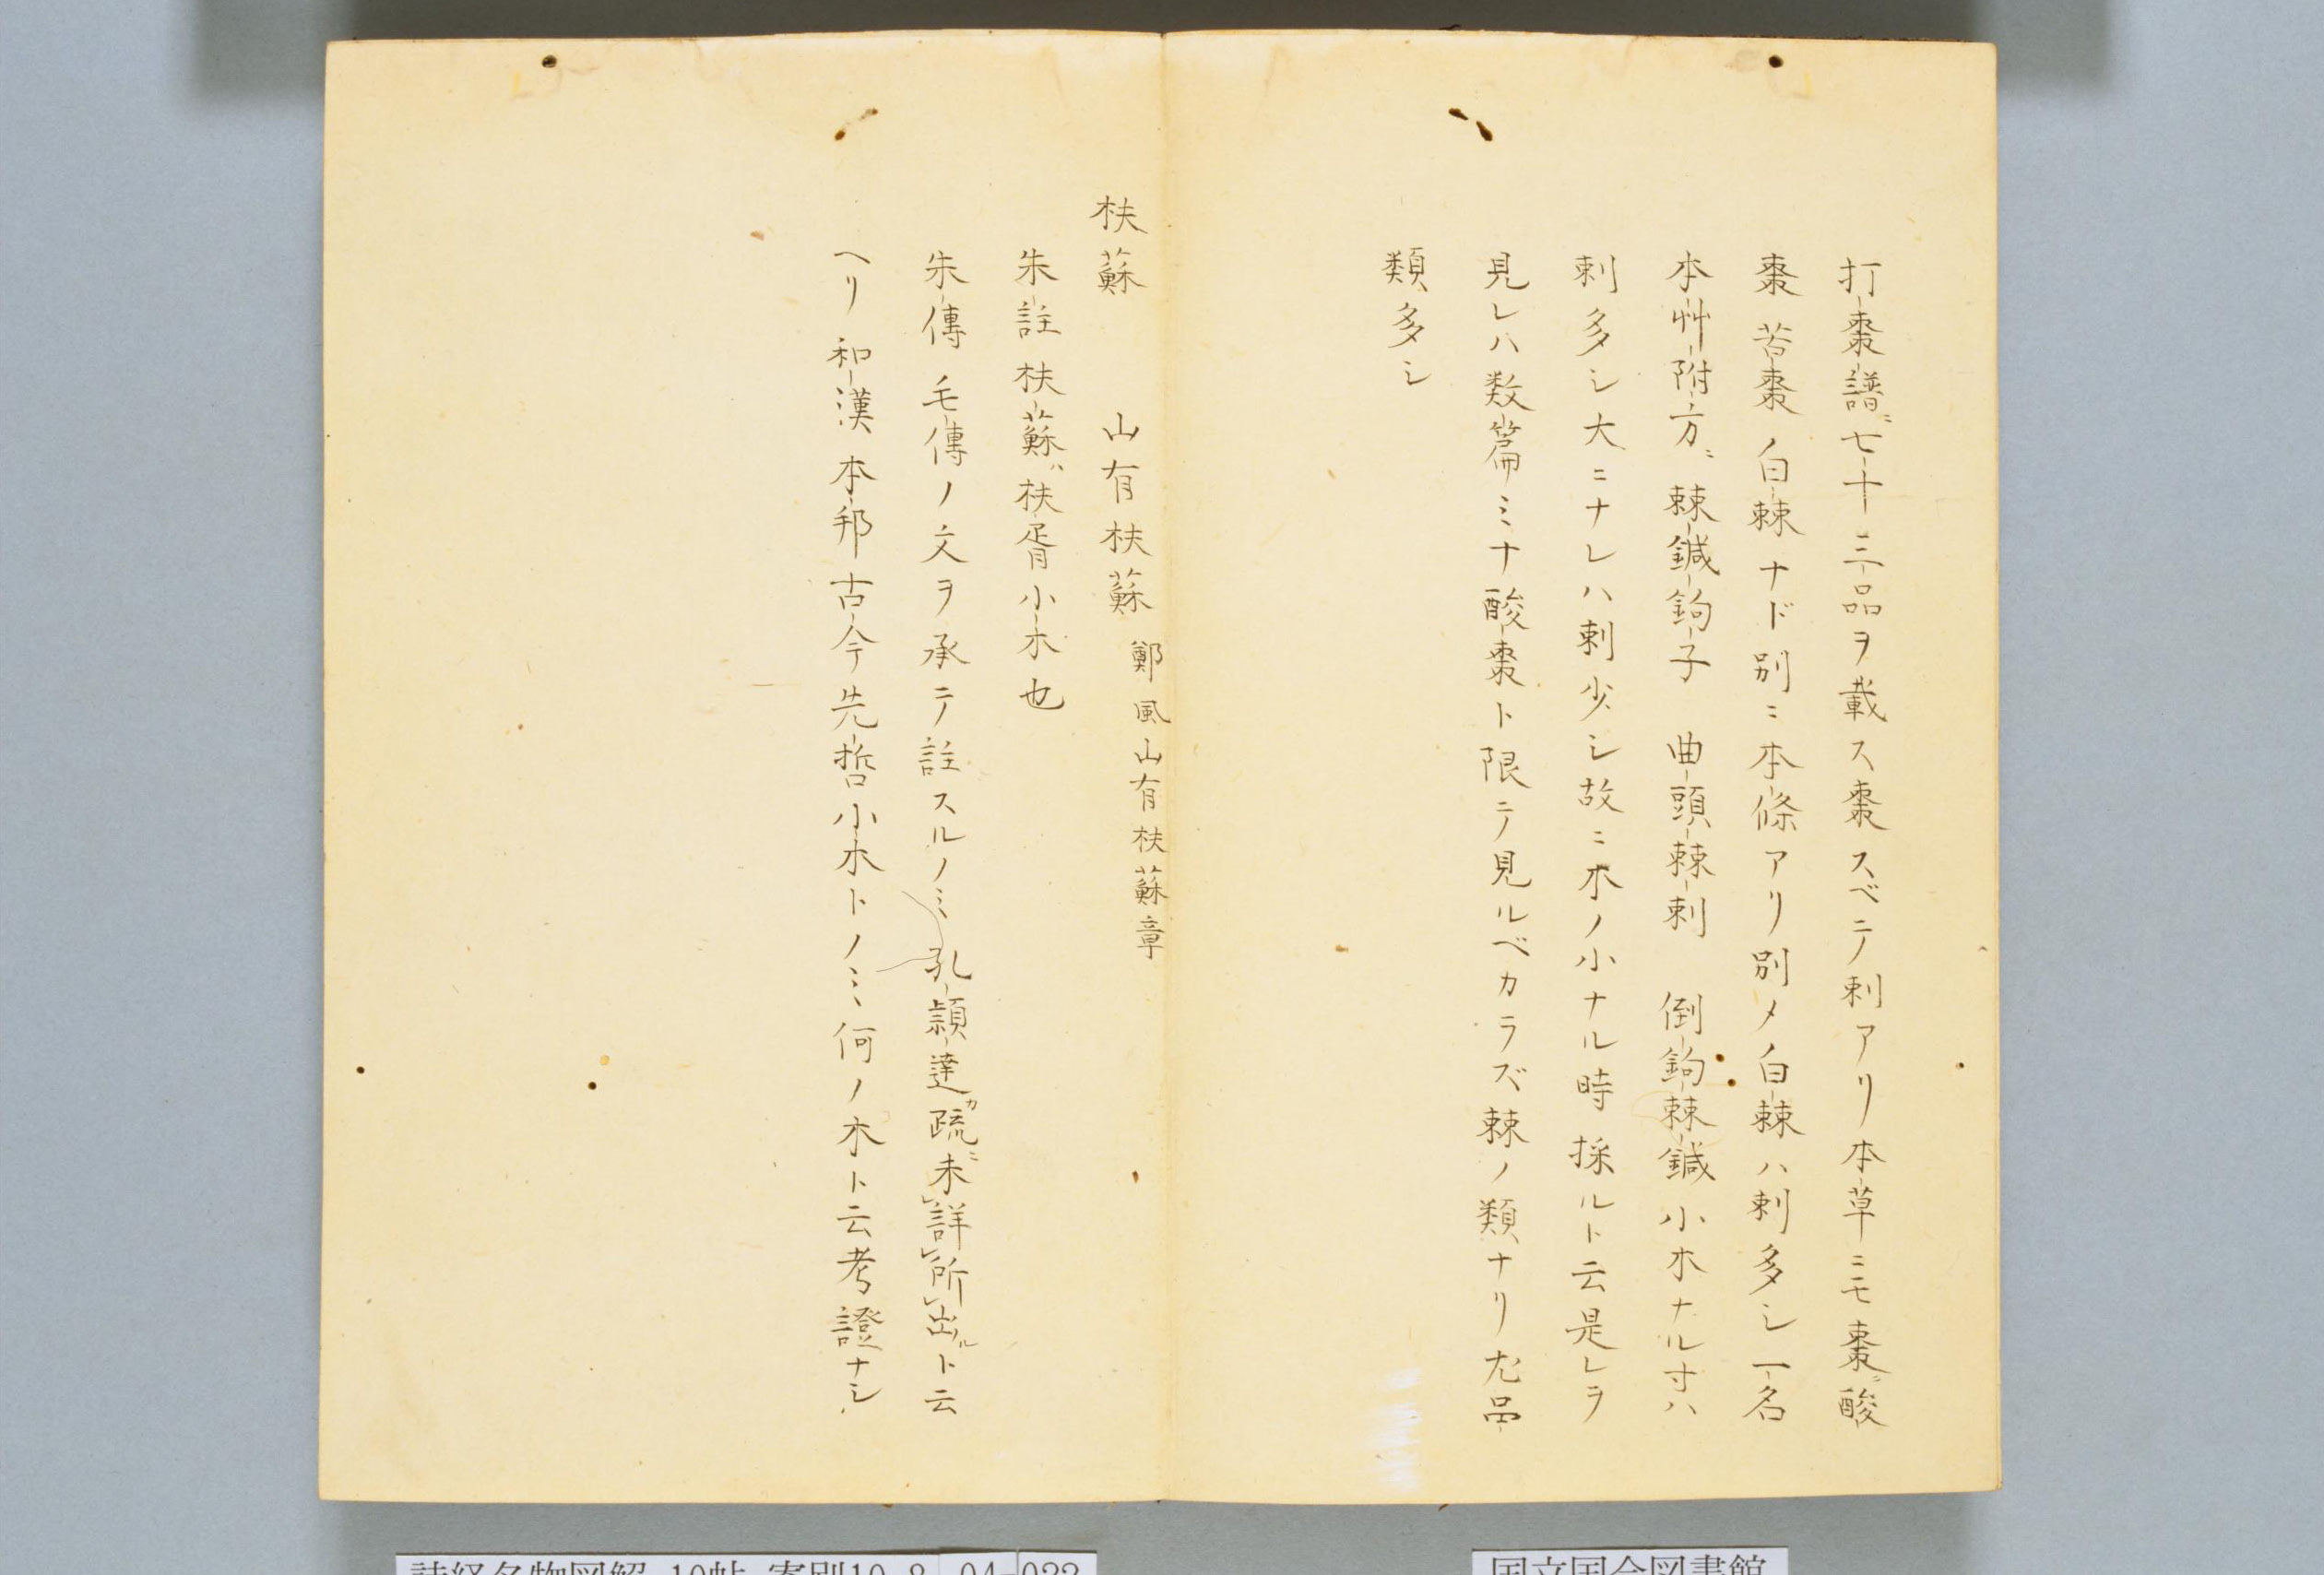 打棗譜ニ七十三品ヲ載ス棗スベテ刺アリ本草ニモ棗ニ酸
棗苦棗ノ白棘ナド別ニ本條アリ別メ白棘ハ刺多シ一名
本艸附方ニ棘鍼鉤子 曲頭棘刺 倒鉤棘鍼小木ナル寸ハ
刺多シ大ニナレハ刺少シ故ニ木ノ小ナル時採ルト云是レヲ
見レハ数篇ミナ酸棗ト限テ見ルベカラズ棘ノ類ナリ尤品
類多シ
枎蘇 山有枎蘇 鄭風山有枎蘇章
朱註枎蘇ハ枎胥小木也
朱傳毛傳ノ文ヲ承テ註スルノミ孔頴達カ疏ニ未レ詳レ所レ出ルト云
ヘリ和漢本邦古今先哲小木トノミ何ノ木ト云考證ナシ
詩経名物図解 10帖 寄別10-8 04-022
国立国会図書館